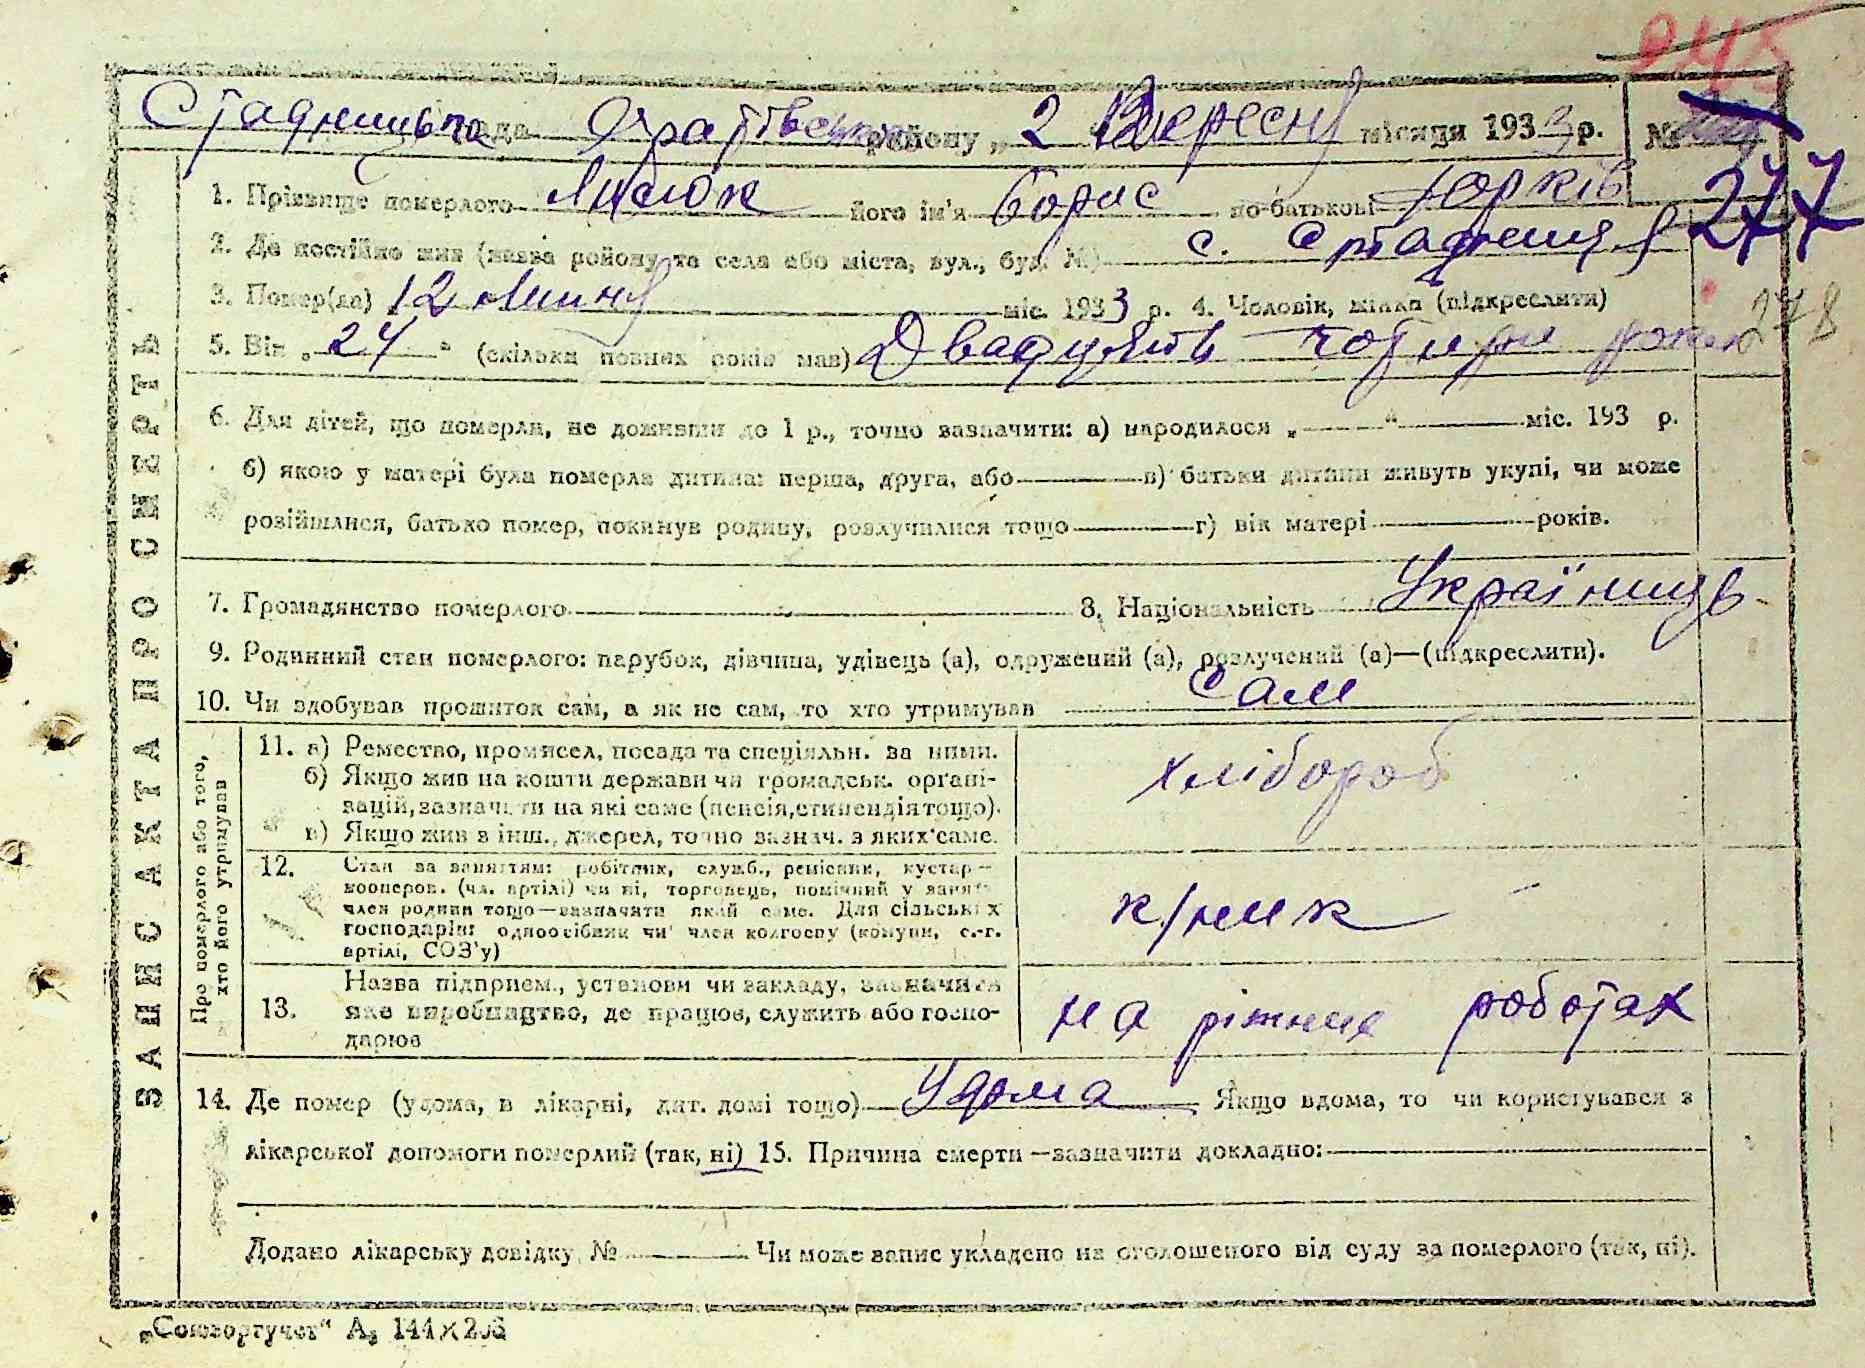 945
Стадницька рада Оратівського району „ 2 Вересня місяця 1933 р. №
277
1. Прізвище померлого Лисюк його ім'я Борис по-батькові Юрків
2. Де постійно жив (назва району та села або міста, вул., буд. №) с. Стадниця
3. Помер(ла) 12 Липня міс. 1933 р. 4. Чоловік, жінка (підкреслити)
278
5. Вік „ 24 “ (скільки повних років мав) Двадцять чотири роки
6. Для дітей, що померли, не доживши до 1 р., точно зазначити: а) народилося „ “ міс. 193 р.
б) якою у матері була померла дитина: перша, друга, або в) батьки дитини живуть укупі, чи може
розійшлися, батько помер, покинув родину, розлучилися тощо г) вік матері років.
7. Громадянство померлого 8. Національність Українець
9. Родинний стан померлого: парубок, дівчина, удівець (а), одружений (а), розлучений (а)—(підкреслити).
10. Чи здобував прожиток сам, а як не сам, то хто утримував сам
ЗАПИС АКТА ПРО СМЕРТЬ
Про померлого або того, хто його утримував
11. а) Ремество, промисел, посада та спеціяльн. за ними. хлібороб
б) Якщо жив на кошти держави чи громадськ. органі-
зацій, зазначити на які саме (пенсія, стипендія тощо).
в) Якщо жив з інш. джерел, точно зазнач. з яких саме.
12. Стан за заняттям: робітник, служб., ремісник, кустар—
кооперов. (чл. артілі) чи ні, торговець, помічний у занят.
член родини тощо—зазначити який саме. Для сільських
господарів: одноосібник чи член колгоспу (комуни, с.-г.
артілі, СОЗ'у) к/ник
13. Назва підприєм., установи чи закладу, зазначити
яке виробництво, де працює, служить або госпо-
дарює на ріжних роботах
14. Де помер (удома, в лікарні, дит. домі тощо) Удома Якщо вдома, то чи користувався з
лікарської допомоги померлий (так, ні) 15. Причина смерти—зазначити докладно:
Додано лікарську довідку № Чи може запис укладено на оголошеного від суду за померлого (так, ні).
„Союзоргучет“ А₅ 144×206